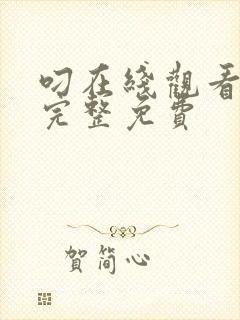 叨在綫觀看
完整免費
賀簡心